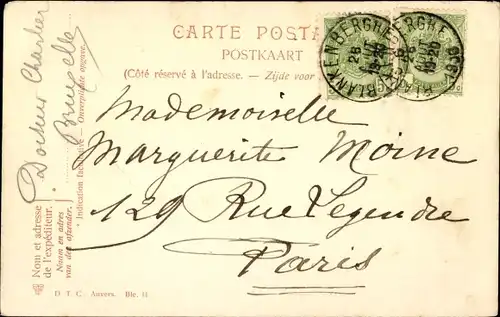 CARTE POSTA
POSTKAART
(Côté réservé à l'adresse. — Zijde voor
BLANKENBERGHE
28
1906
BLANKENBERGHE
28
1906
Mademoiselle
Marguerite Moine
129 Rue Legendre
Paris
Docteur Charlier
Bruxelles
* Indication facultative — Onverplichte opgave.
Nom et adresse
de l'expéditeur.
Naam en adres
van den afzender.
D. T. C. Anvers. Ble. 11